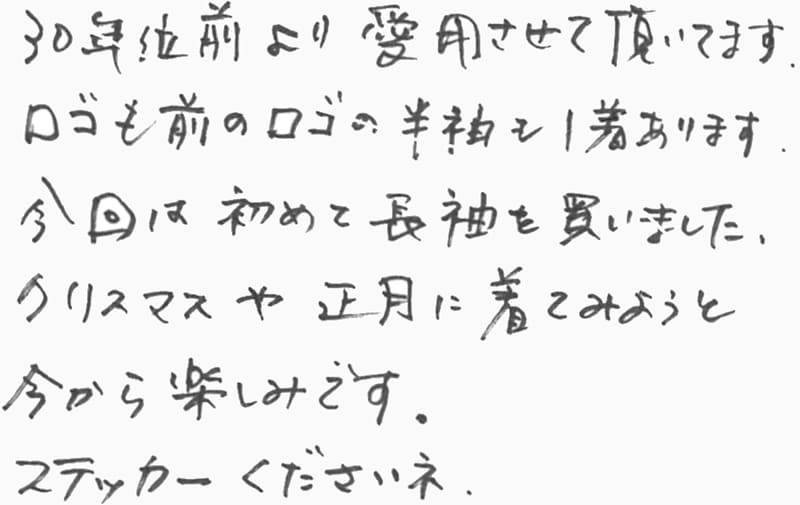 30年位前より愛用させて頂いてます.
ロゴも前のロゴの半袖も1着あります.
今回は初めて長袖を買いました.
クリスマスや正月に着てみようと
今から楽しみです。
ステッカーくださいネ.